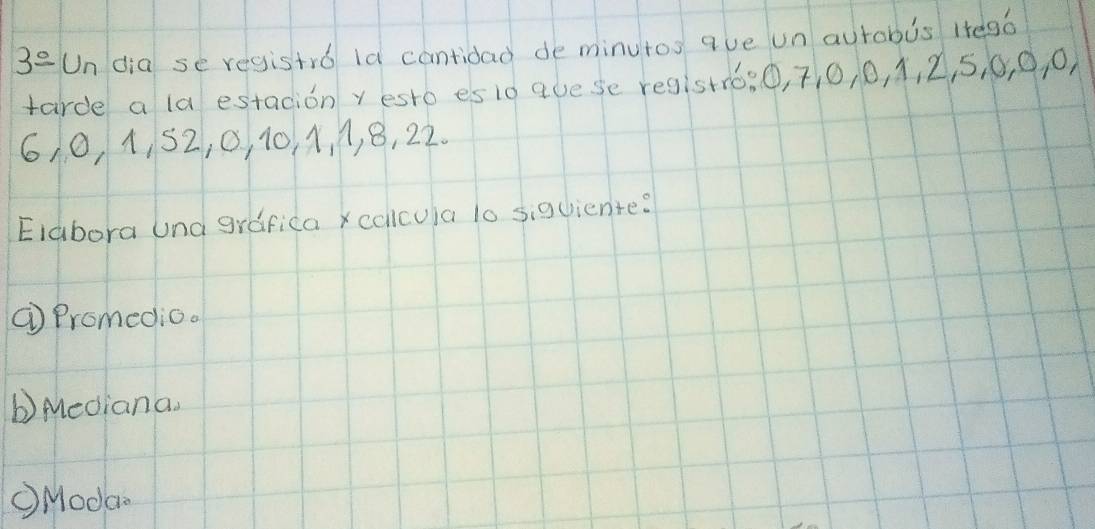 3º Un dia se registró la cantidad de minutos que un autobús llegó
tarde a la estación y esto es lo que se registró: 0, 7, 0, 0, 1, 2, 5, 0, 0, 0,
6, 0, 1, 52, 0, 10, 1, 1, 8, 22.
Elabora una gráfica y calcula lo siguiente:
a) Promedio.
b) Mediana.
c) Moda.